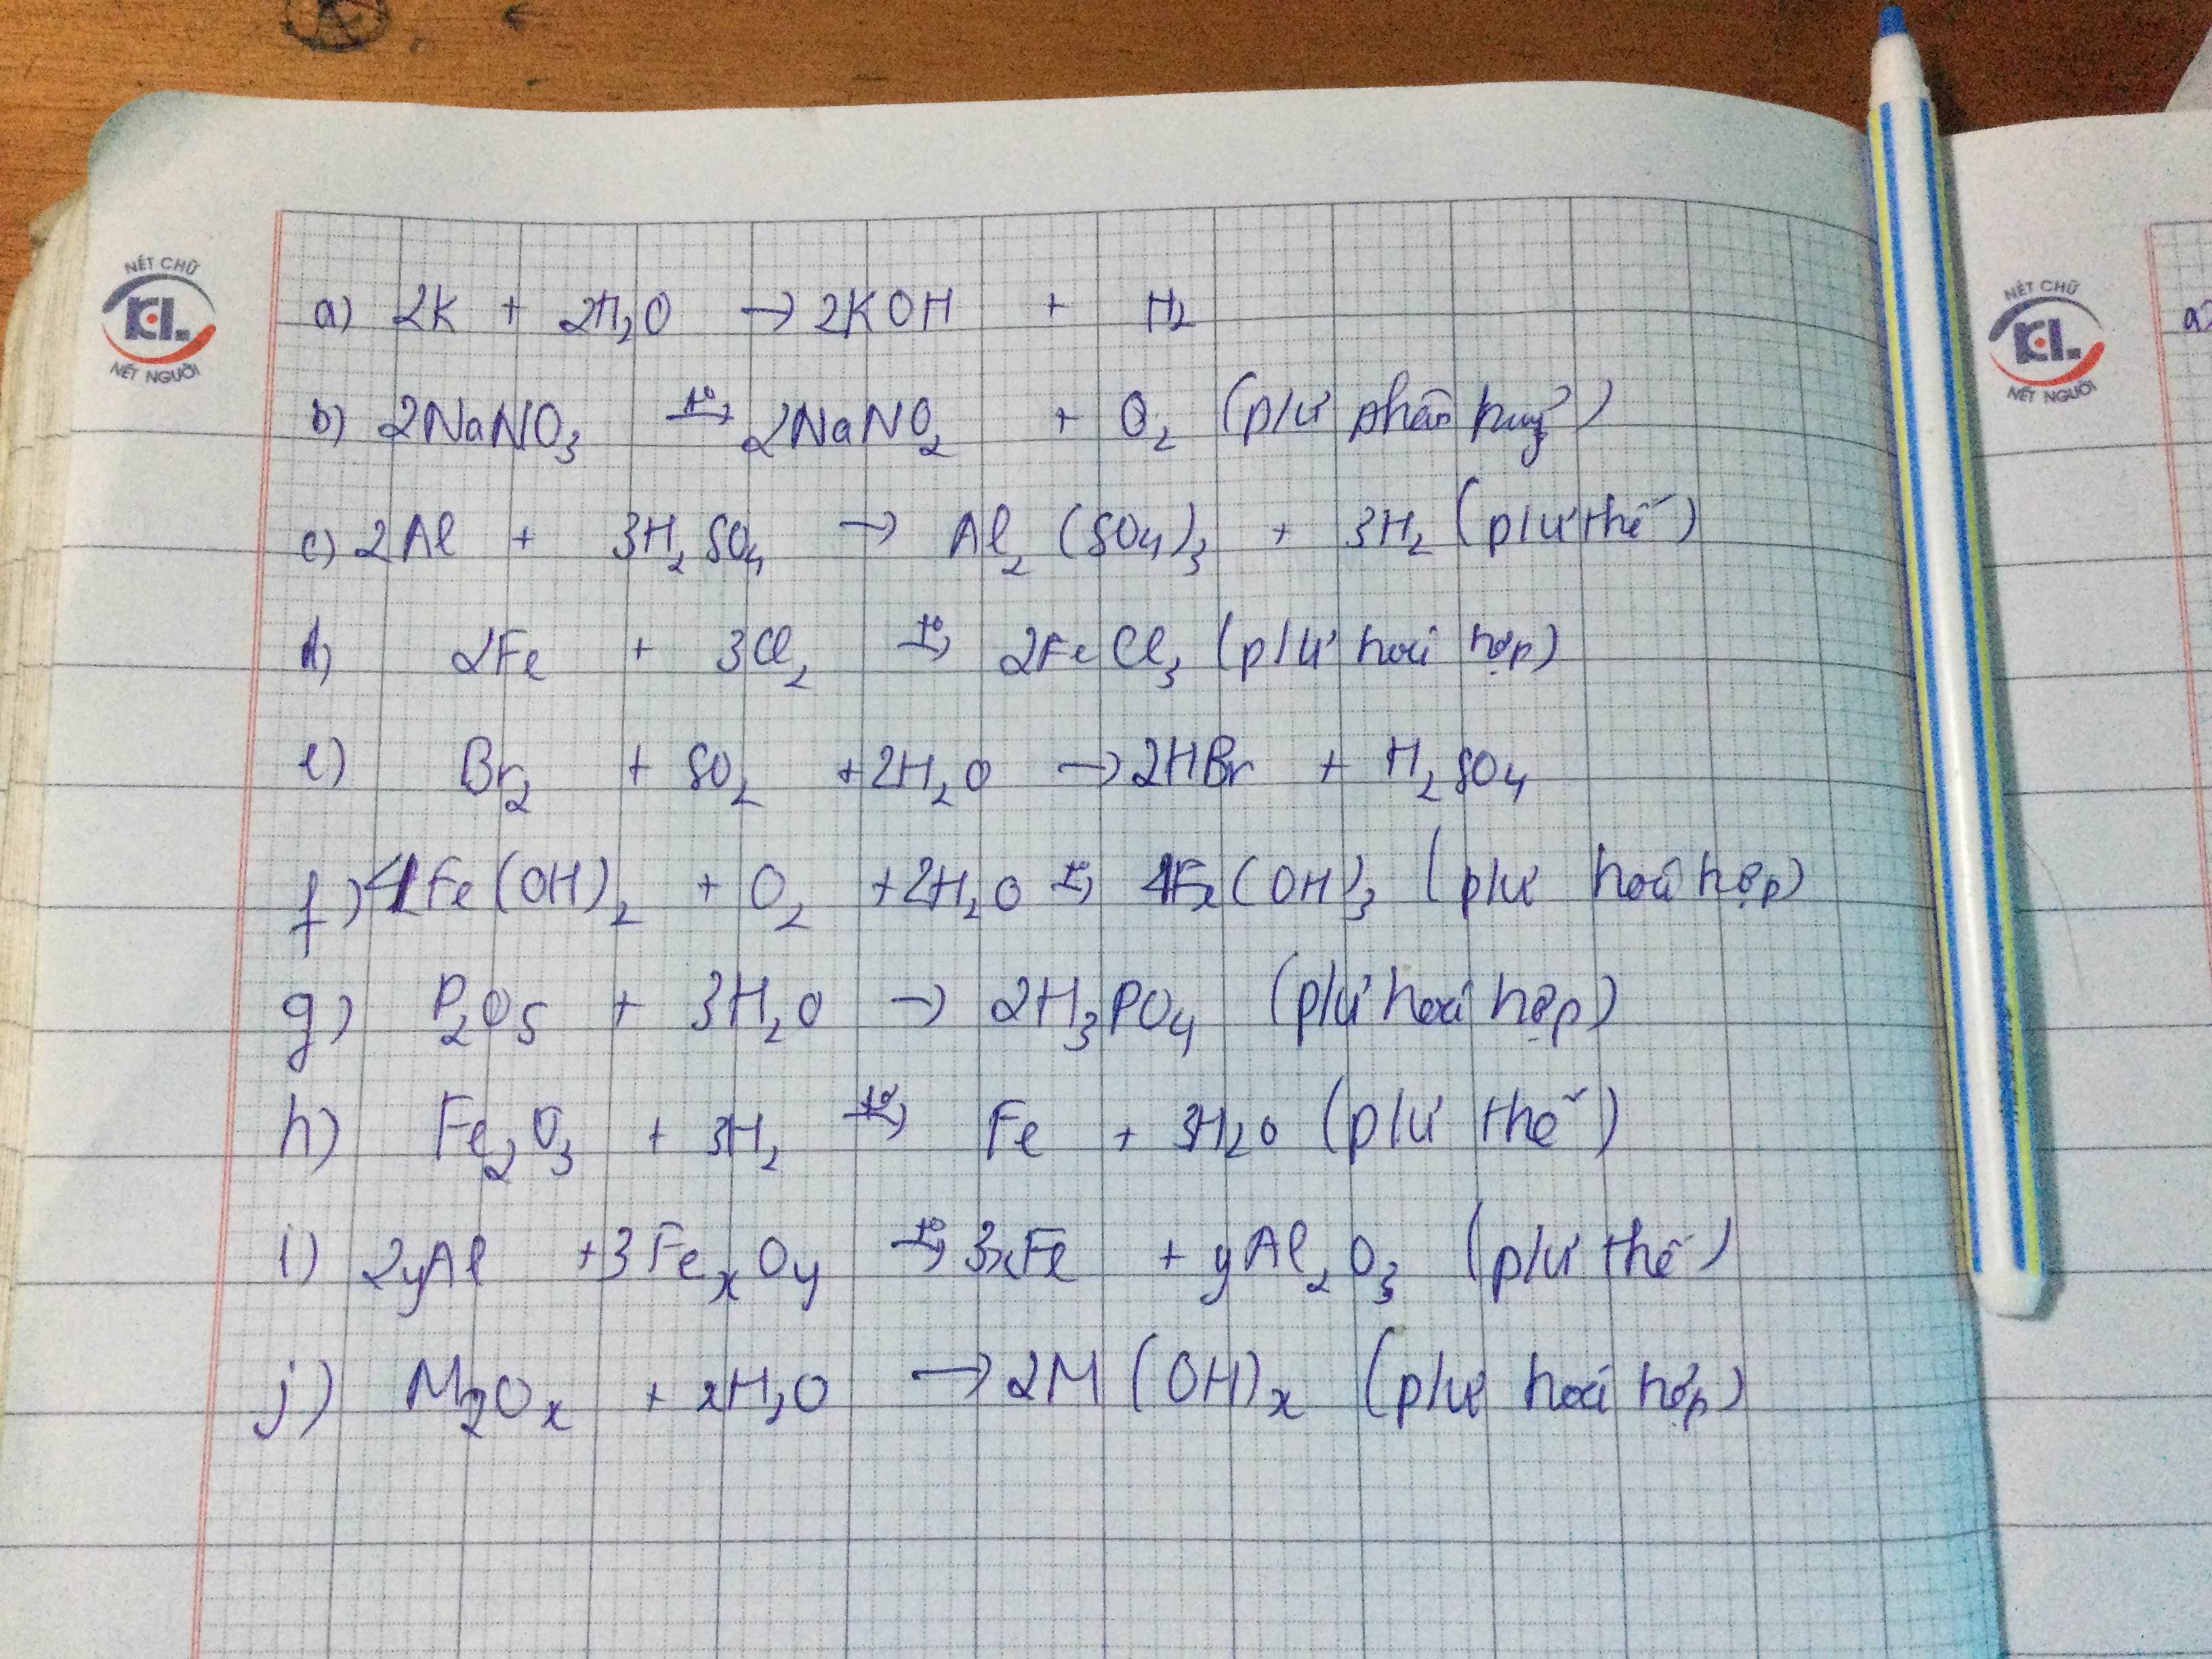 NÉT CHỮ
KL
NẾT NGƯỜI
a) 2K + 2H₂O → 2KOH + H₂
b) 2NaNO₃ t°→ 2NaNO₂ + O₂ (p/ư phân huỷ)
c) 2Al + 3H₂SO₄ → Al₂(SO₄)₃ + 3H₂ (p/ư thế)
d) 2Fe + 3Cl₂ t°→ 2FeCl₃ (p/ư hoá hợp)
e) Br₂ + SO₂ + 2H₂O → 2HBr + H₂SO₄
f) 4Fe(OH)₂ + O₂ + 2H₂O t°→ 4Fe(OH)₃ (p/ư hoá hợp)
g) P₂O₅ + 3H₂O → 2H₃PO₄ (p/ư hoá hợp)
h) Fe₂O₃ + 3H₂ t°→ Fe + 3H₂O (p/ư thế)
i) 2yAl + 3FeₓOy t°→ 3xFe + yAl₂O₃ (p/ư thế)
j) M₂Oₓ + xH₂O → 2M(OH)ₓ (p/ư hoá hợp)
NÉT CHỮ
KL
NẾT NGƯỜI
a)